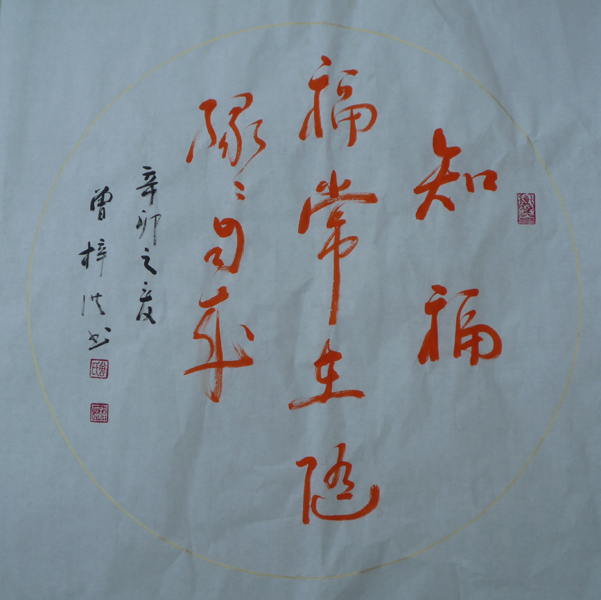 知福
福常在随
缘〻自来
辛卯之夏
曾梓洪书